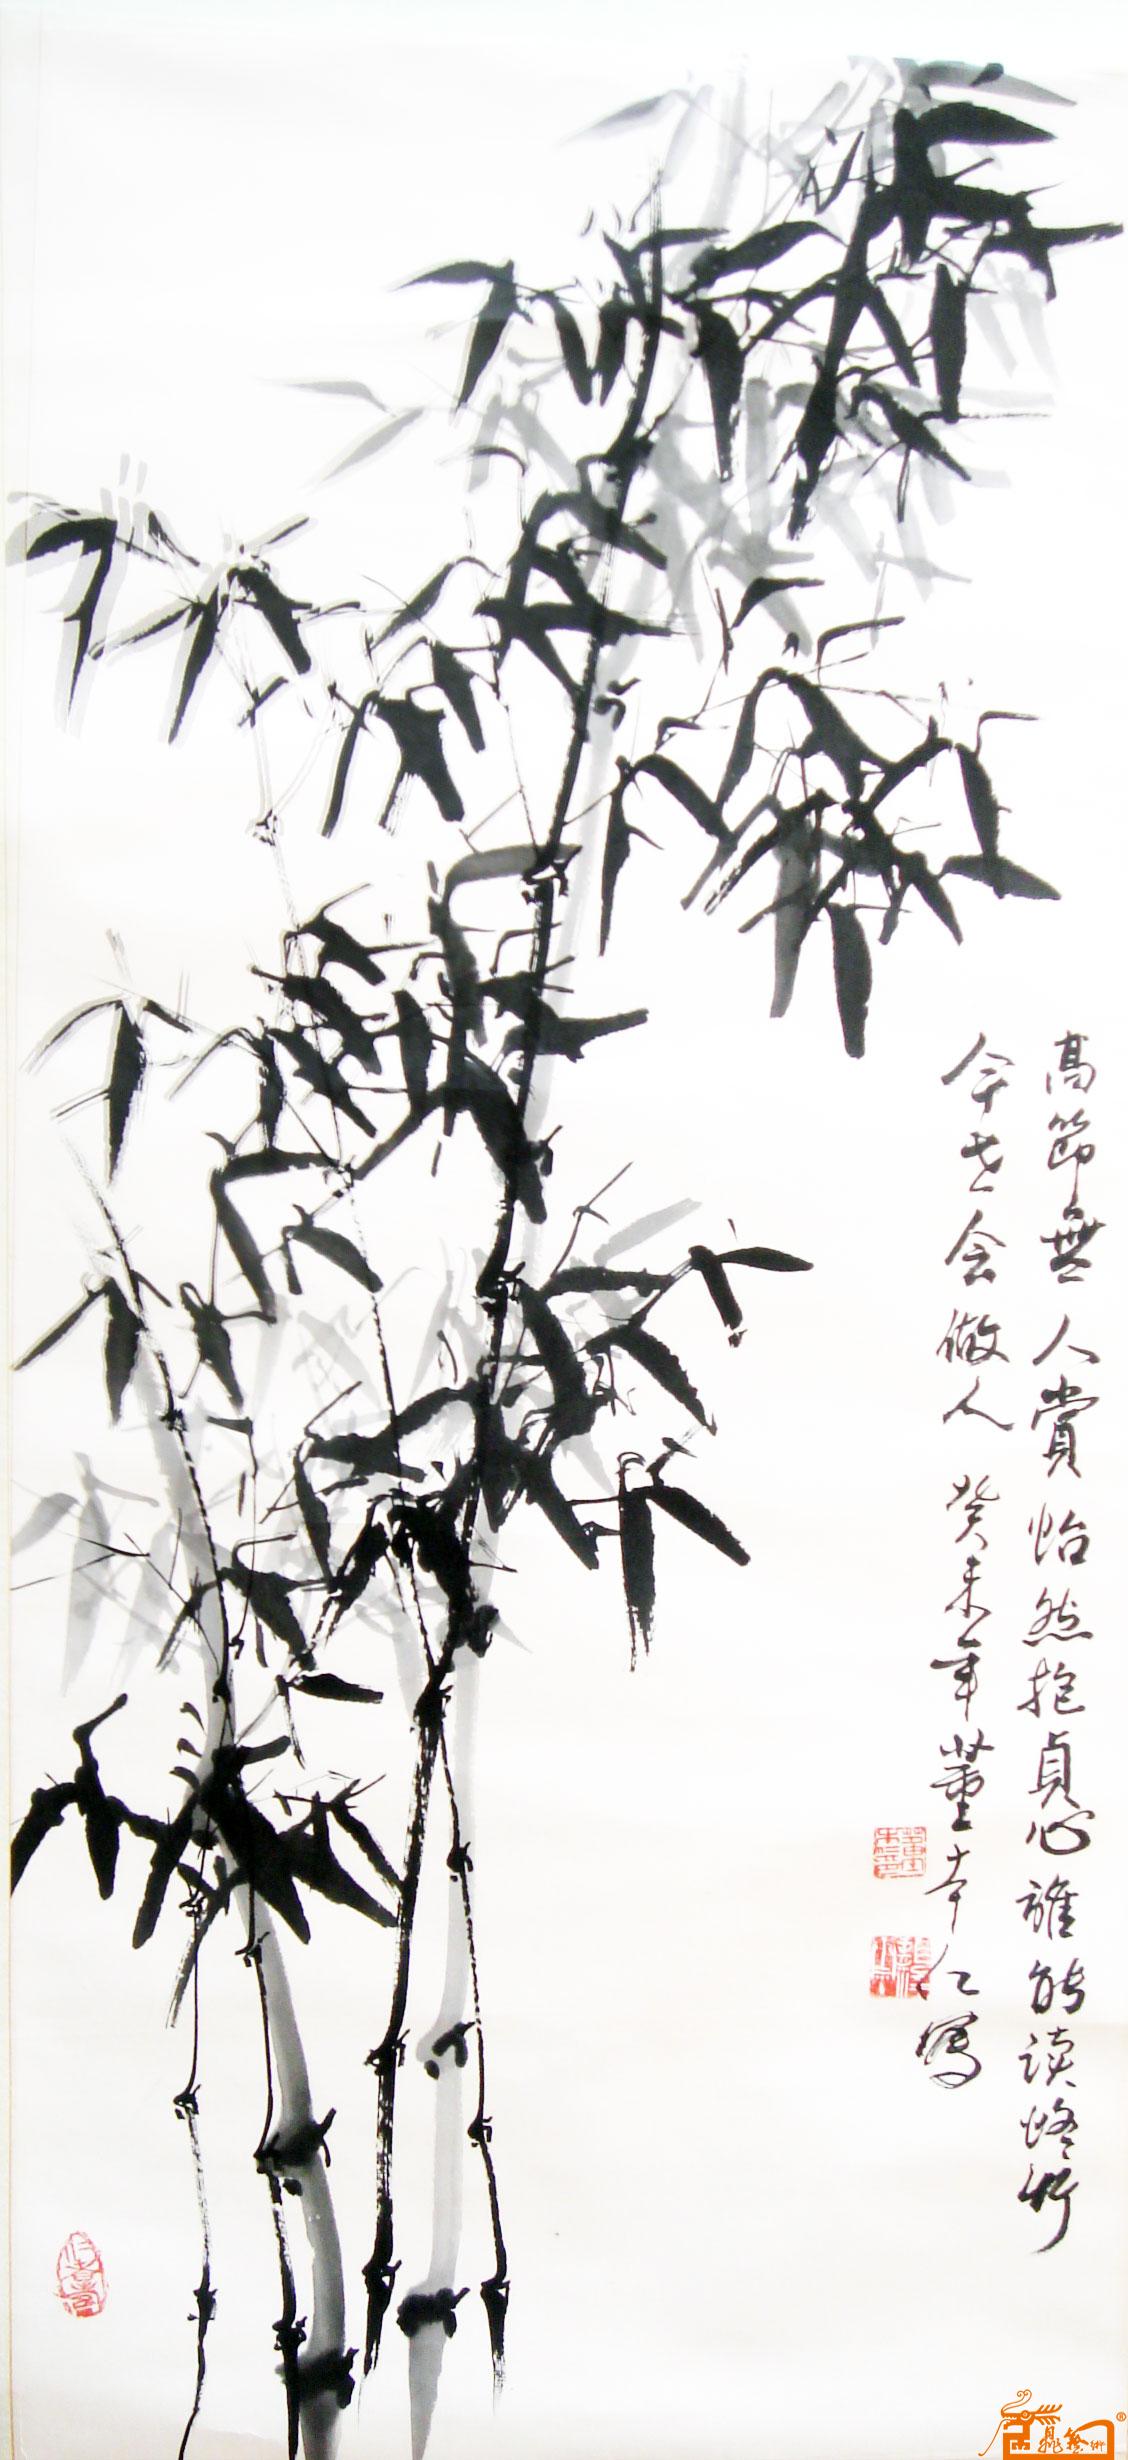 高節無人賞怡然抱貞心誰能读修竹
今世会做人 癸未年董本仁寫